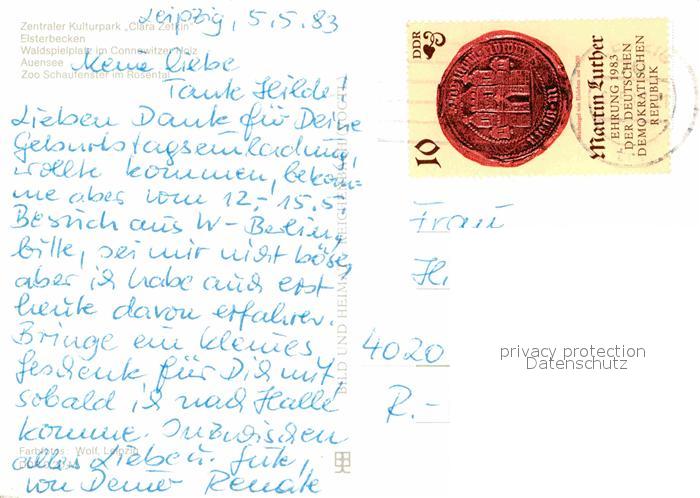 Zentraler Kulturpark „Clara Zetkin"
Elsterbecken
Waldspielplatz im Connewitzer Holz
Auensee
Zoo Schaufenster im Rosental
Leipzig, 5.5.83
Meine liebe
Tante Hilde!
Lieben Dank für Deine
Geburtstagseinladung,
wollte kommen, bekom=
me aber vom 12.-15.5.
Besuch aus W-Berlin,
bitte, sei mir nicht böse,
aber ich habe auch erst
heute davon erfahren.
Bringe ein kleines
Geschenk für Dich mit,
sobald ich nach Halle
komme. Inzwischen
alles Liebe u. Gute,
von Deiner Renate
Farbfotos: Wolf, Leipzig
BILD UND HEIMAT REICHENBACH
DDR
10
Martin Luther
EHRUNG 1983
DER DEUTSCHEN
DEMOKRATISCHEN
REPUBLIK
Frau
H.
4020
R.-
privacy protection
Datenschutz